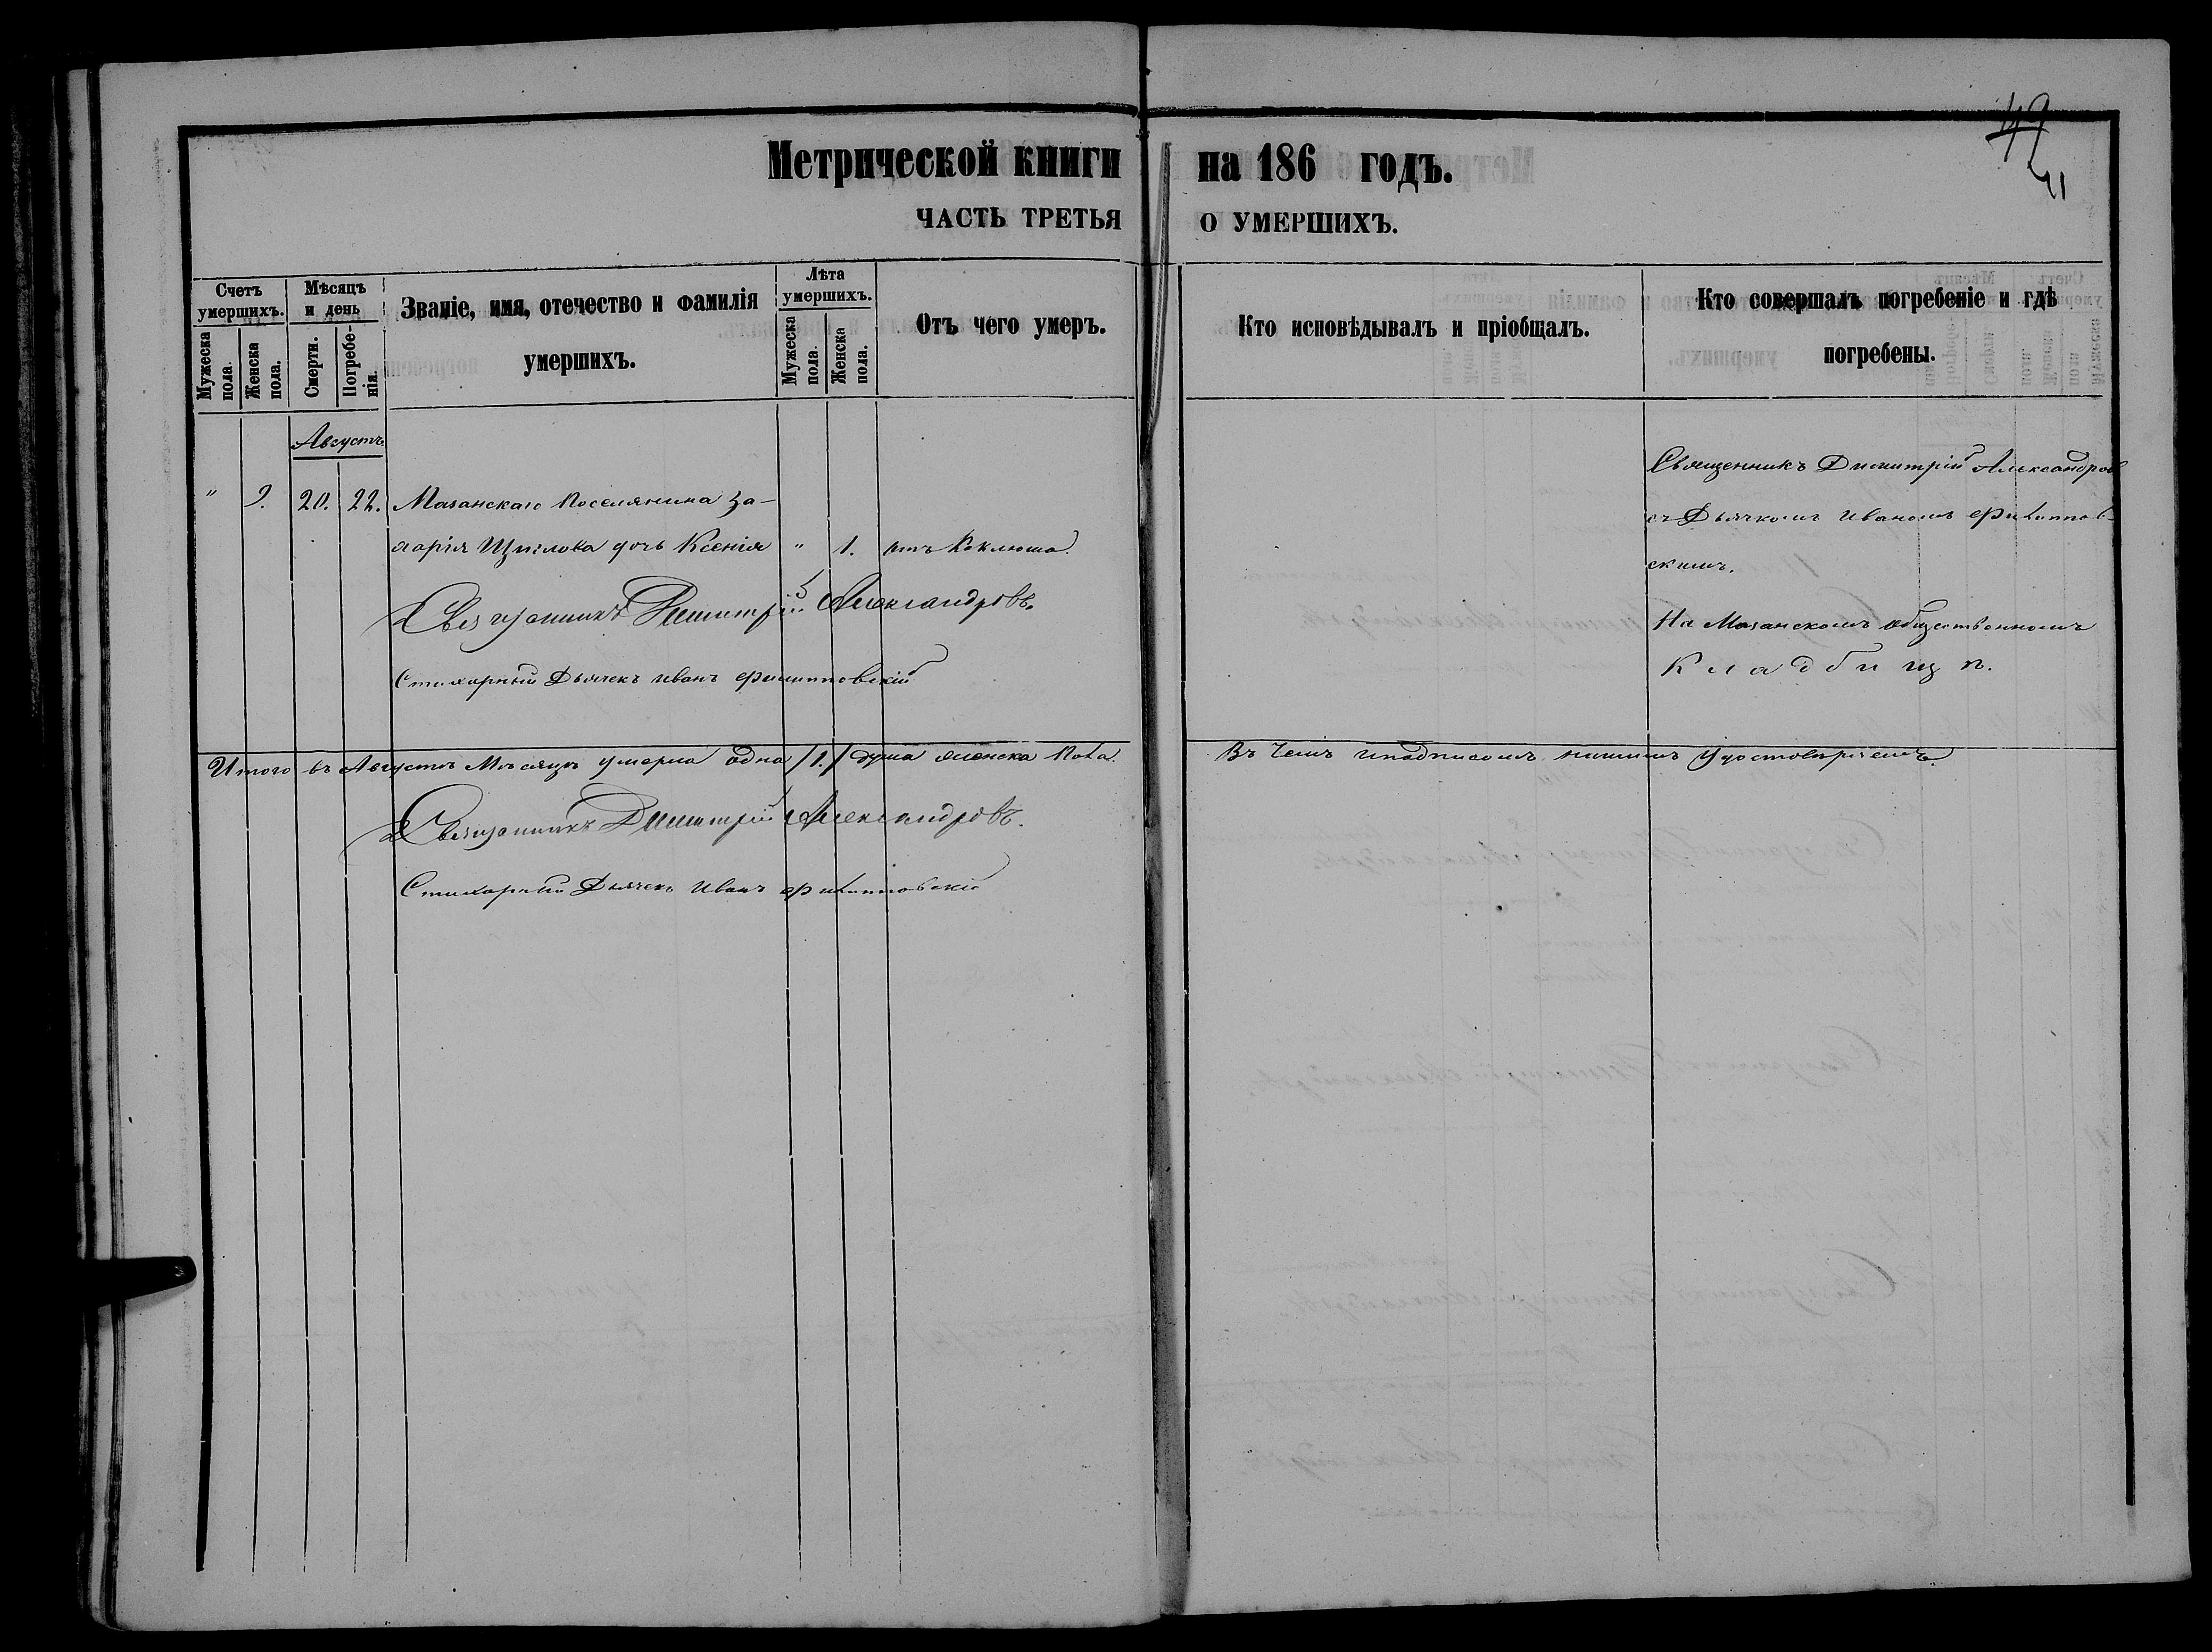 49
41
Метрической книги на 186 годъ.
ЧАСТЬ ТРЕТЬЯ О УМЕРШИХЪ.
Счетъ умершихъ.
Мужеска пола.
Женска пола.
Мѣсяцъ и день
Смерти.
Погребенія.
Званіе, имя, отечество и фамилія
умершихъ.
Лѣта умершихъ.
Мужеска пола.
Женска пола.
Отъ чего умеръ.
Кто исповѣдывалъ и пріобщалъ.
Кто совершалъ погребеніе и гдѣ
погребены.
Августъ
" 9. 20. 22. Мазанскаго поселянина За-
харія дочь Ксенія " 1. отъ Коклюша.
Священникъ Димитрій Александровъ.
Стихарный Дьячекъ Иванъ Филипповскій
Священникъ Димитрій Александровъ
съ Дьячкомъ Иваномъ Филиппов-
скимъ.
На Мазанскомъ общественномъ
Кладбищѣ.
Итого въ Августѣ Мѣсяцѣ умерла одна /1./ душа женска пола. Въ чемъ и подписомъ нашимъ удостовѣряемъ.
Священникъ Димитрій Александровъ.
Стихарный Дьячекъ Иванъ Филипповскій